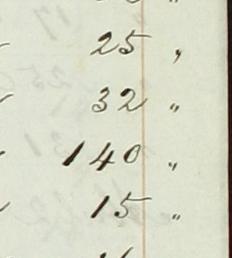 25 "
32 "
140 "
15 "